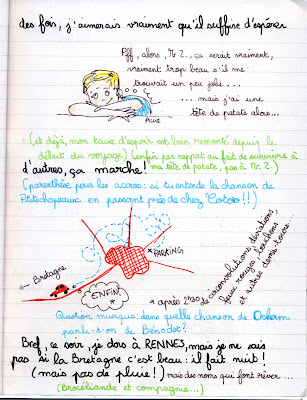 des fois, j'aimerais vraiment qu'il suffise d'espérer
Pff, alors, Mr Z., ça serait vraiment,
vraiment trop beau s'il me
trouvait un peu jolie....
... mais j'ai une
tête de patate alors...
(et déjà, mon taux d'espoir est bien remonté depuis le
début du voyage) (enfin par rapport au fait de survivre à
d'autres, ça marche! ma tête de patate, pas à Mr Z.)
(parenthèse pour les accros: ai-je entendu la chanson de
Ptitschapeaux en passant près de chez Cotoro!!!)
*PARKING
← Bretagne
ENFIN!
* après 2h30 de circonvolutions, déviations,
feux rouges, bouchons
et autres demi-tours...
Question musique: dans quelle chanson de
parle-t-on de Bénodet?
Bref, ce soir, je dors à RENNES, mais je ne sais
pas si la Bretagne c'est beau: il fait nuit!
(mais pas de pluie!) mais des noms qui font rêver...
(Brocéliande et compagnie...)